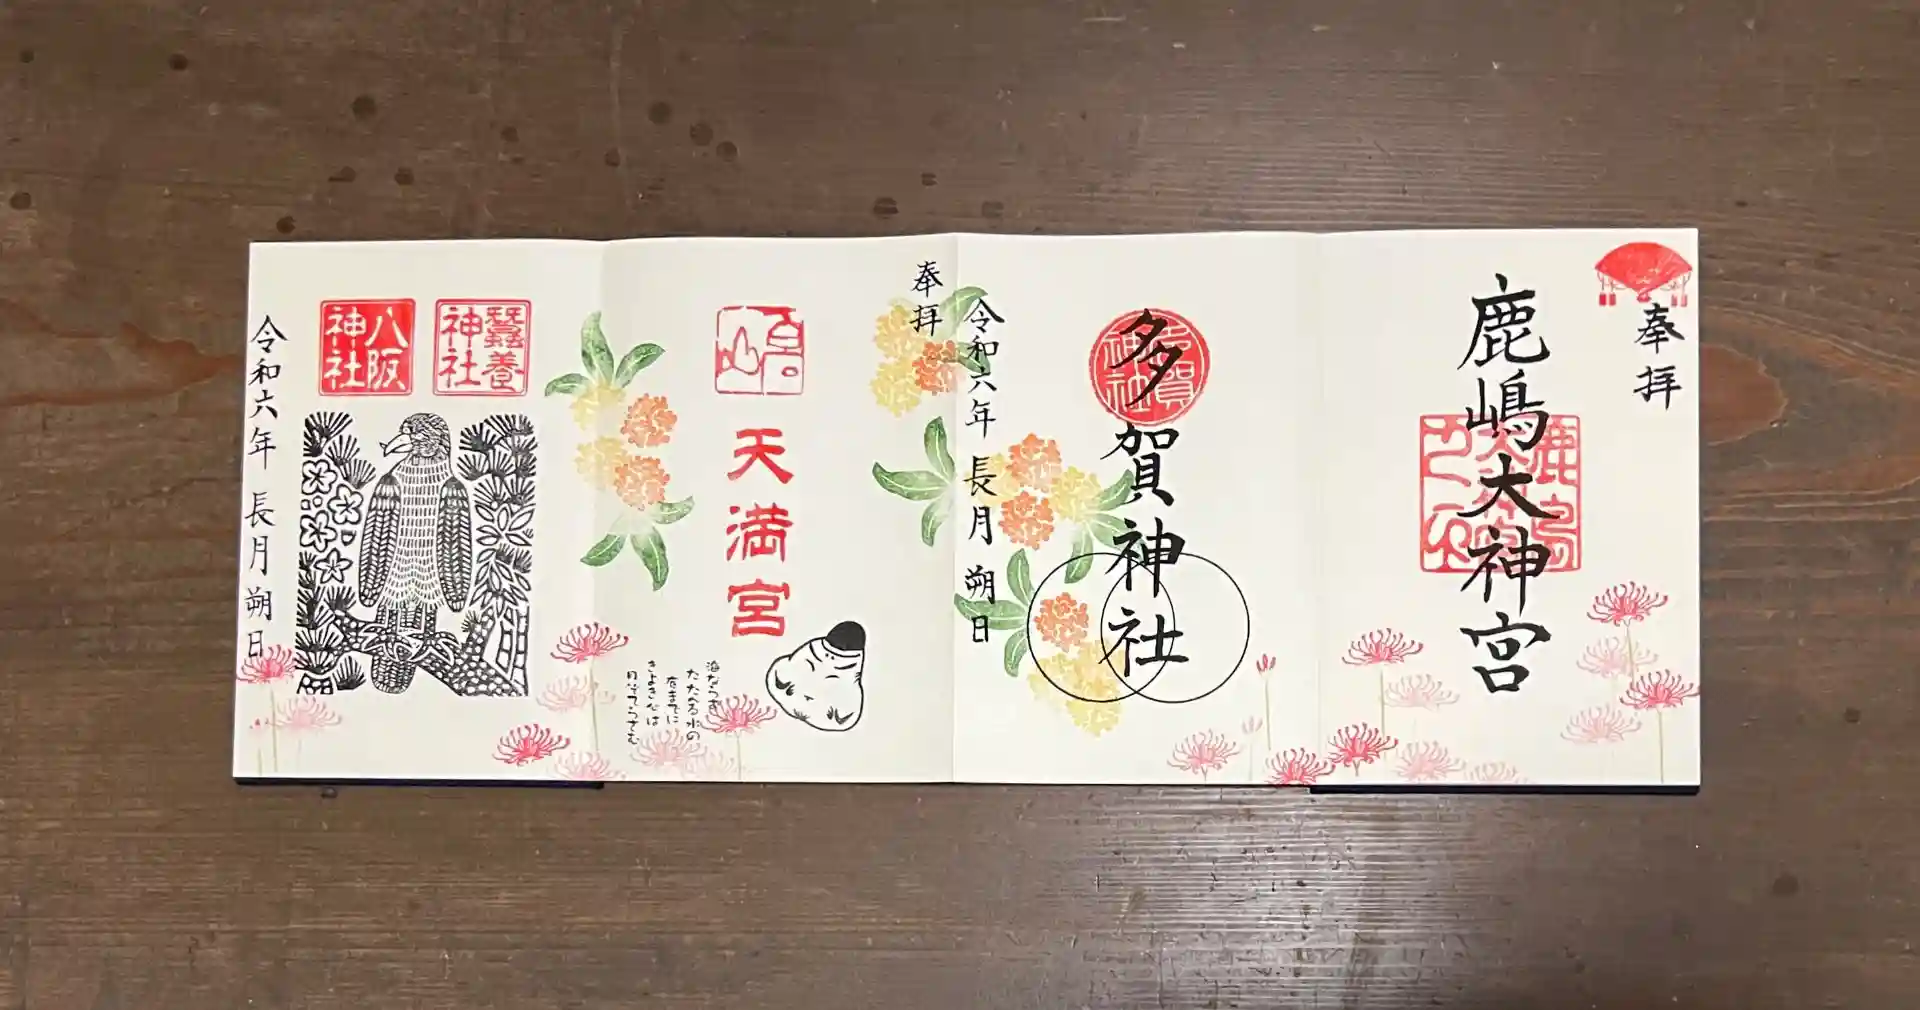 奉拝
鹿嶋大神宮
多賀神社
令和六年 長月 朔日
奉拝
天満宮
海ならず
たたへる水の
底までに
きよき心は
月ぞてらさむ
蠶養
神社
八阪
神社
令和六年 長月 朔日